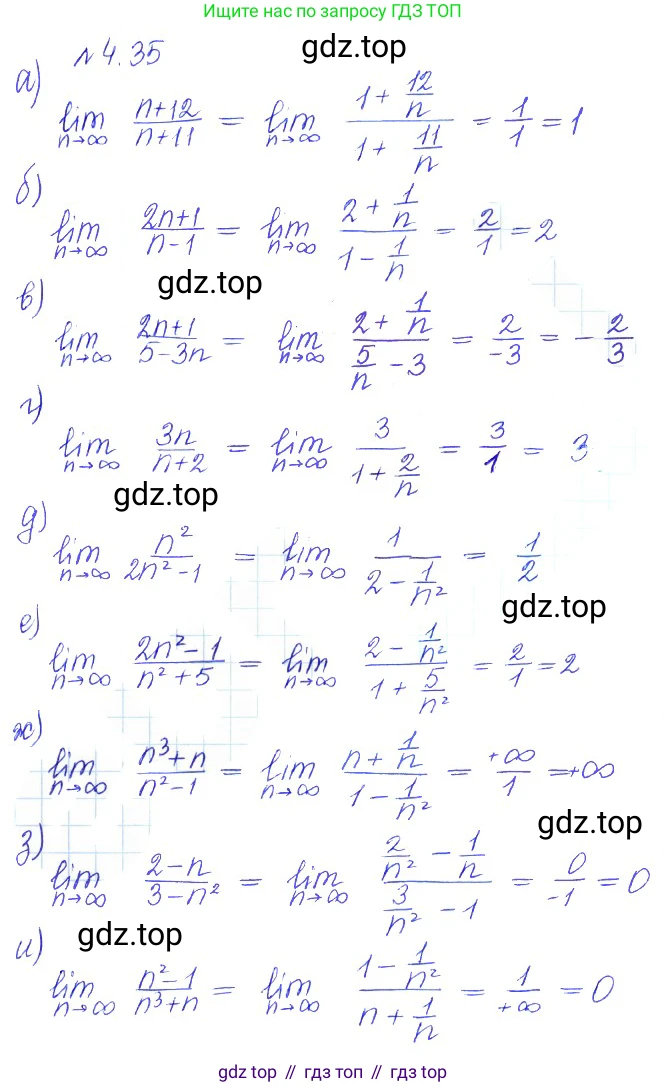 Ищите нас по запросу ГДЗ ТОП
№4.35
gdz.top
а)
lim n→∞ (n+12)/(n+11) = lim n→∞ (1 + 12/n)/(1 + 11/n) = 1/1 = 1
б)
lim n→∞ (2n+1)/(n-1) = lim n→∞ (2 + 1/n)/(1 - 1/n) = 2/1 = 2
gdz.top
в)
lim n→∞ (2n+1)/(5-3n) = lim n→∞ (2 + 1/n)/(5/n - 3) = 2/-3 = -2/3
г)
lim n→∞ 3n/(n+2) = lim n→∞ 3/(1 + 2/n) = 3/1 = 3
gdz.top
д)
lim n→∞ n²/(2n²-1) = lim n→∞ 1/(2 - 1/n²) = 1/2
gdz.top
е)
lim n→∞ (2n²-1)/(n²+5) = lim n→∞ (2 - 1/n²)/(1 + 5/n²) = 2/1 = 2
ж)
lim n→∞ (n³+n)/(n²-1) = lim n→∞ (n + 1/n)/(1 - 1/n²) = +∞/1 = +∞
gdz.top
з)
lim n→∞ (2-n)/(3-n²) = lim n→∞ (2/n² - 1/n)/(3/n² - 1) = 0/-1 = 0
gdz.top
и)
lim n→∞ (n²-1)/(n³+n) = lim n→∞ (1 - 1/n²)/(n + 1/n) = 1/+∞ = 0
gdz.top // гдз топ // гдз.top